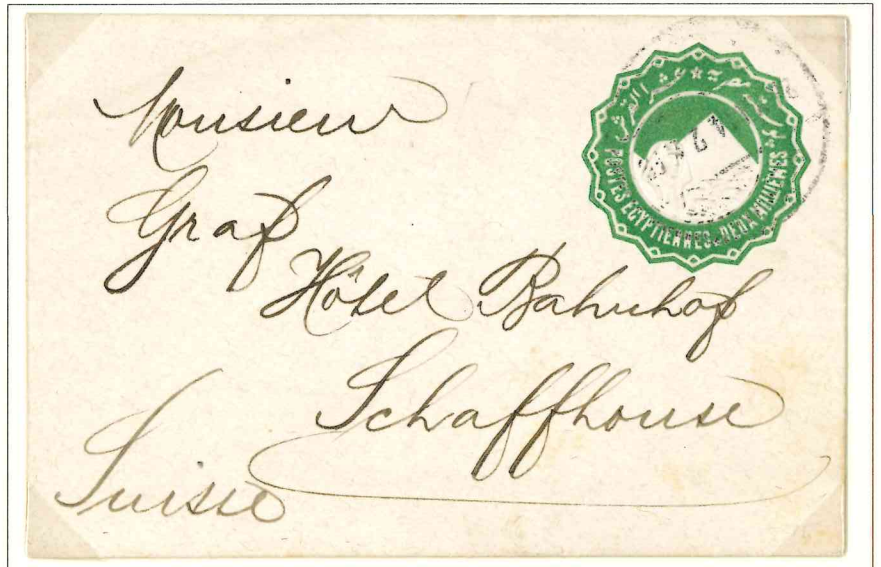 Monsieur
Graf
Hôtel Bahnhof
Schaffhouse
Suisse
POSTES EGYPTIENNES. DEUX MILLIEMES